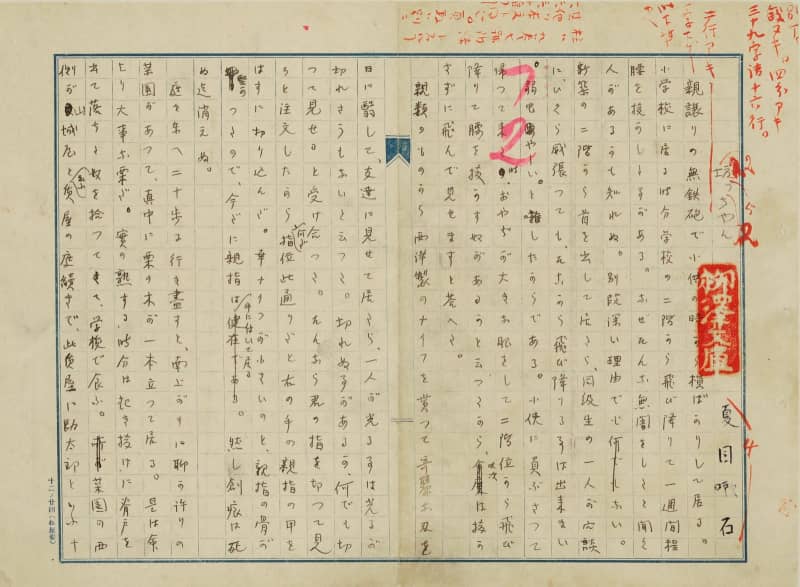 三十九字詰十六行。
二行アキ
坊っちやん
夏目漱石
72
親譲りの無鉄砲で小供の時から損ばかりして居る。
小学校に居る時分学校の二階から飛び降りて一週間程
腰を抜かした事がある。なぜそんな無闇をしたと聞く
人があるかも知れぬ。別段深い理由でも何でもない。
新築の二階から首を出して居たら、同級生の一人が冗談
にいくら威張つても、そこから飛び降りる事は出来まい
。弱虫やーい。と囃したからである。小使に負ぶさつて
帰つて来た時、おやぢが大きな眼をして二階位から飛び
降りて腰を抜かす奴があるかと云つたから、此次は抜か
さずに飛んで見せますと答へた。
親類のものから西洋製のナイフを貰つて奇麗な刃を
日に翳して、友達に見せて居たら、一人が光る事は光るが
切れさうもないと云つた。切れぬ事があるか、何でも切
つて見せると受け合つた。そんなら君の指を切つて見
ろと注文したから、何だ指位此通りだと右の手の親指の甲を
はすに切り込んだ。幸ナイフが小さいのと、親指の骨が
堅かつたので、今だに親指は手に付いて居る。然し創痕は死
ぬ迄消えぬ。
庭を東へ二十歩に行き尽すと、南上がりに聊か許りの
菜園があつて、真中に栗の木が一本立つて居る。是は命
より大事な栗だ。実の熟する時分は起き抜けに脊戸を
出て落ちた奴を拾つてきて、学校で食ふ。菜園の西
側が山城屋と云ふ質屋の庭続きで、此質屋に勘太郎といふ十